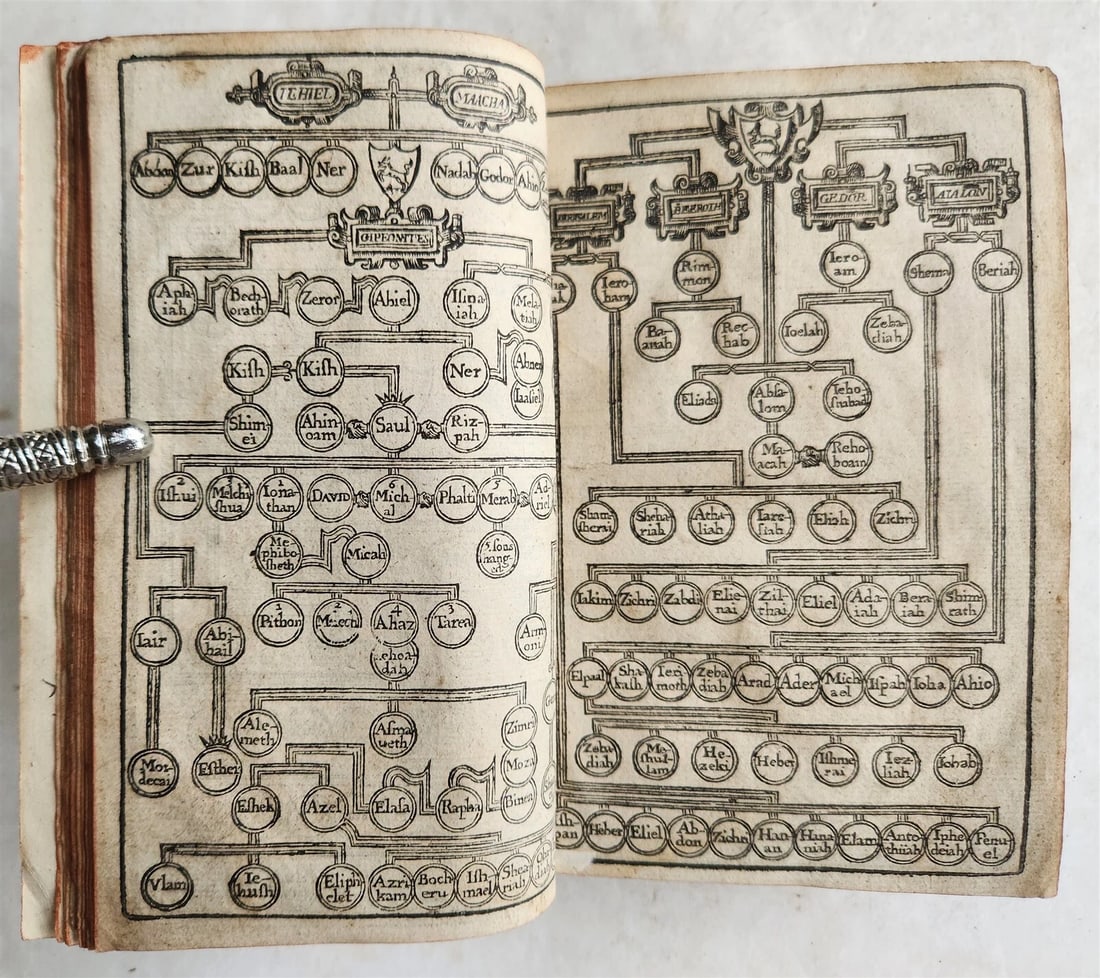 IEHIEL MAACHA
Abdon Zur Kiſh Baal Ner Nadab Godor Ahio
GIBEONITES
Aph-
iah
Bech-
orath
Zeror
Abiel
Iſma-
iah
Mela-
tiah
Kiſh Kiſh Ner Abner
Iaaſiel
Shim-
ei
Ahin-
oam
Saul
Riz-
pah
2
Iſhui
3
Melchi
ſhua
1
Iona-
than
DAVID
6
Mich-
al
Phalti
5
Merab
Ad-
riel
Me-
phibo-
ſheth
Micah
5 ſons
hang-
ed
1
Pithon
2
4
Ahaz
3
Tarea
Iehoa-
dah
Arm-
oni
Iair
Abi-
hail
Ale-
meth
Aſma-
ueth
Zimri
Mor-
decai
Eſther
Moza
Eſhek Azel Elaſa Rapha Binea
Vlam
Ie-
huſh
Eliph-
elet
Azri-
kam
Boch-
eru
Iſh-
mael
Shea-
riah
BEEROTH
GEDOR
AIALON
Iero-
ham
Rim-
mon
Iero-
am
Shema
Beriah
Ba-
anah
Rec-
hab
Ioelah
Zeba-
diah
Eliada
Abſa-
lom
Ieho-
ſhabad
Ma-
acah
Reho-
boam
Sham-
ſherai
Sheha-
riah
Atha-
liah
Iareſ-
iah
Eliah
Zichri
Iakim
Zichri
Zabdi
Elie-
nai
Zil-
thai
Eliel
Ada-
iah
Bera-
iah
Shim-
rath
Elpaal
Sha-
kaſh
Ieri-
moth
Zeba-
diah
Arad
Ader
Mich-
ael
Iſpah
Ioha
Ahio
Zeba-
diah
Me-
ſhul-
lam
He-
zeki
Heber
Iſhme-
rai
Iez-
liah
Iobab
Iſh-
pan
Heber
Eliel
Ab-
don
Zichri
Han-
an
Hana-
niah
Elam
Anto-
thiiah
Iphe-
deiah
Penu-
el